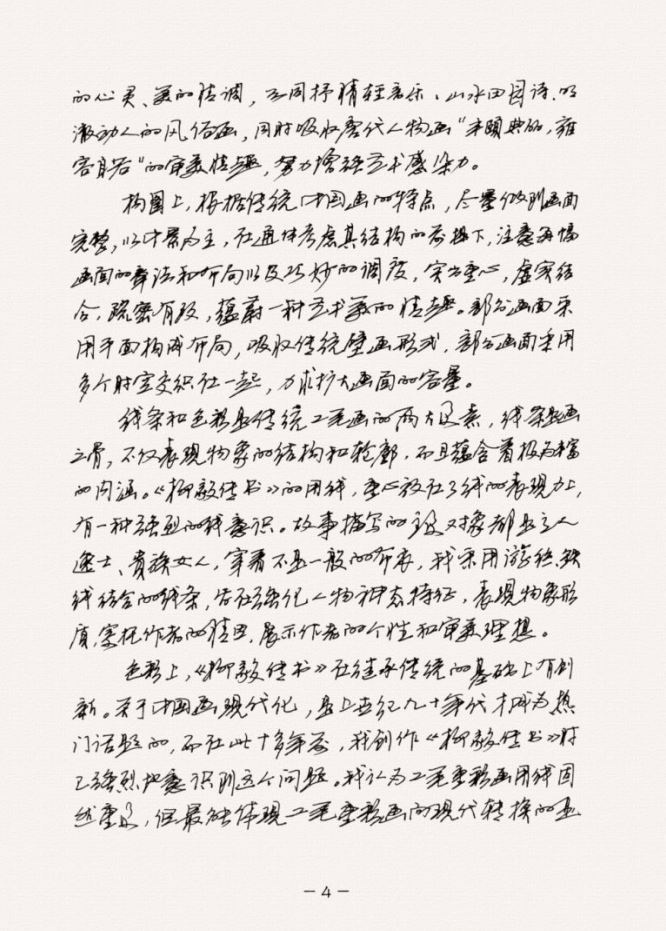 的心灵、美的情调，
激动人的风俗画，同时吸收唐代人物画“丰颐典丽，雍
容自若”的审美情趣，努力增强艺术感染力。
构图上，根据传统中国画的特点，尽量做到画面
完整，以中景为主，在通体考虑其结构的前提下，注意每幅
画面的章法和布局以及巧妙的调度，突出重心，虚实结
合，疏密有致，蕴蔚一种艺术美的情趣。部分画面采
用平面构成布局，吸收传统壁画形式，部分画面采用
多个时空交织在一起，力求扩大画面的容量。
线条和色彩是传统工笔画的两大因素，线条是画
之骨，不仅表现物象的结构和轮廓，而且蕴含着极为丰富
的内涵。《柳毅传书》的用线，重心放在了线的表现力上，
有一种强烈的线意识。故事描写的 对象都是文人
逸士、贵族女人，穿着不是一般的布衣，我采用游丝、铁
线结合的线条，旨在强化人物神态特征，表现物象形
质，寄托作者的情思，展示作者的个性和审美理想。
色彩上，《柳毅传书》在继承传统的基础上有创
新。关于中国画现代化，是上世纪九十年代才成为热
门话题的，而在此十多年前，我创作《柳毅传书》时
已强烈地意识到这个问题。我认为工笔重彩画用线固
然重要，但最能体现工笔重彩画向现代转换的是
－4－